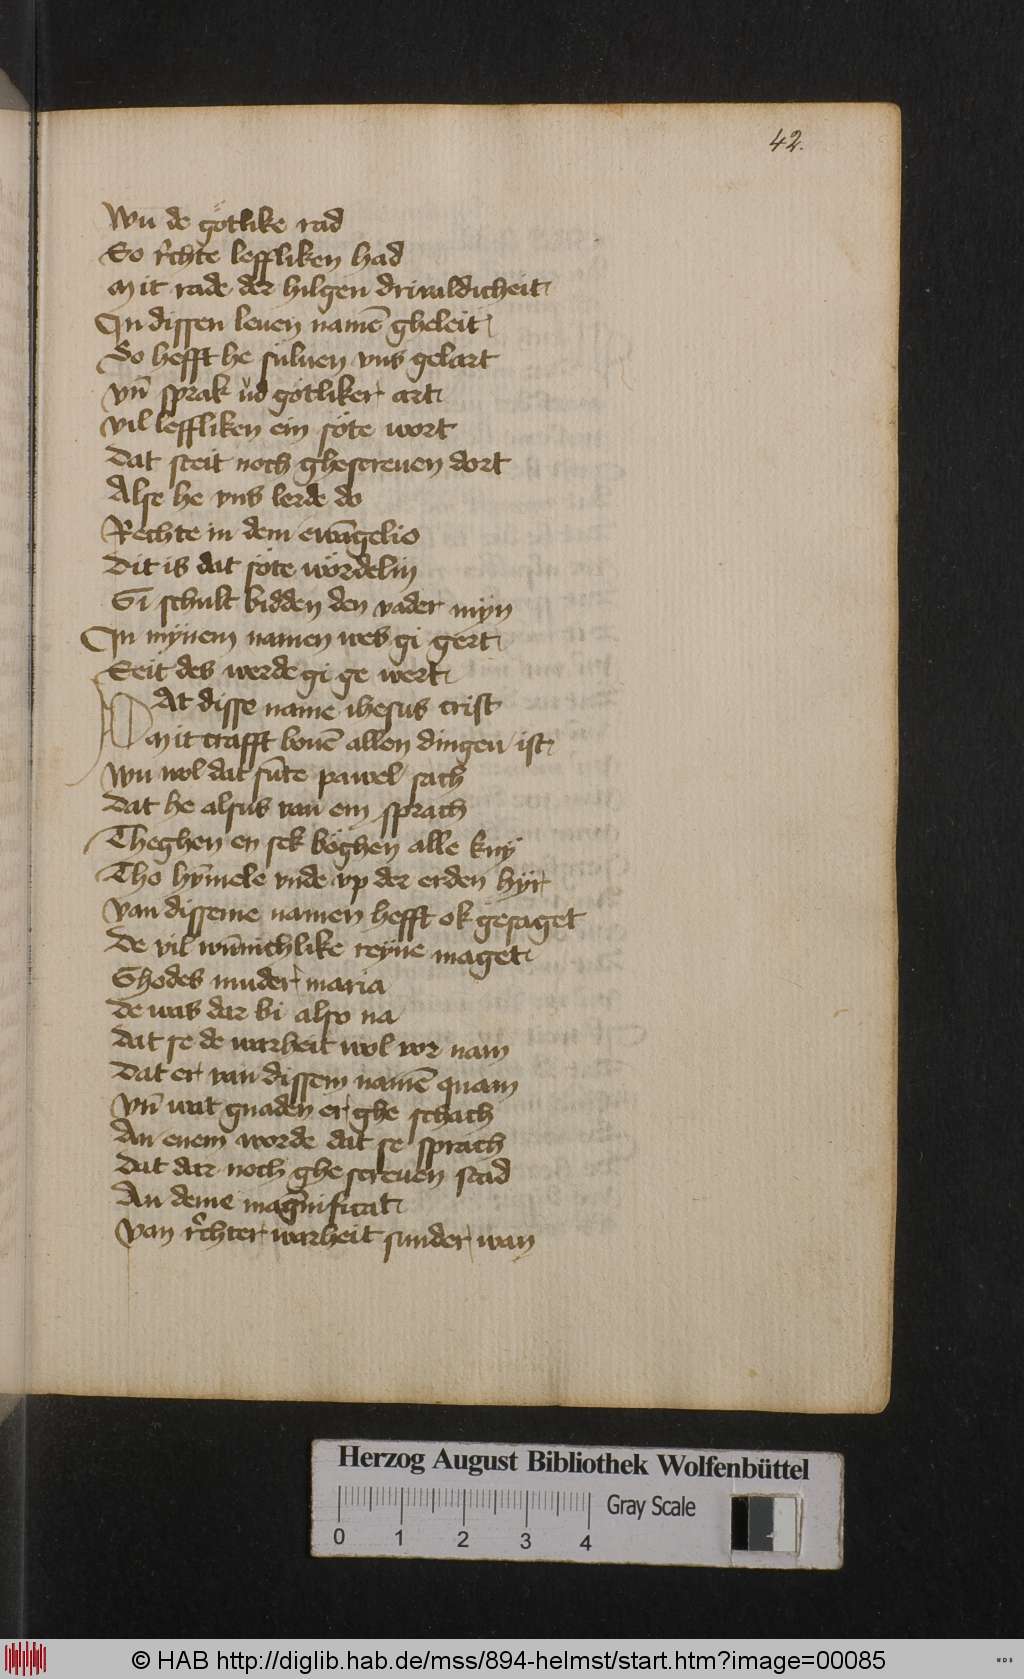 42.
Wu de götlike rad
So r̃chte leffliken had
Mit rade der hilgen driualdicheit
In dissen leuen namē gheleit
So hefft he suluen vns gelart
vn̄ sprak vͤd gotliker art
vil leffliken ein söte wort
Dat steit noch ghescreuen dort
Alse he vns lerde do
Rechte in dem ewāgelio
Dit is dat söte wördelin
Gi schult bidden den vader myn
In mynem namen wes gi gert
Seit des werde gi ge wert
DAt disse name ihesus crist
Mit crafft bouē allen dingen ist
Wu wol dat sūte pawel sach
Dat he alsus van em sprach
Theghen en sck böghen alle kny
Tho hȳmele vnde vp der erden hyr
Van disseme namen hefft ok gesaget
De vil wūnichlike reyne maget
Ghodes muder maria
De was dar bi also na
Dat se de warheit wol vor nam
Dat er van dissem namē quam
Vn̄ wat gnaden er ghe schach
An enem worde dat se sprach
Dat dar noch ghe screuen stad
An deme magnificat
Van r̃chter warheit sunder wan
Herzog August Bibliothek Wolfenbüttel
0 1 2 3 4 Gray Scale
© HAB http://diglib.hab.de/mss/894-helmst/start.htm?image=00085